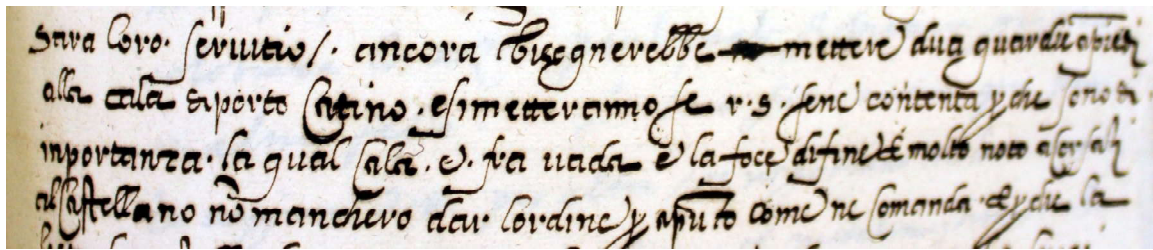 Sara loro servitio /. ancora bisognerebbe mettere dua guardie a piedi
alla cala di porto Catino. e si metteranno se v. s. sene contenta perche sono di
inportanza. la qual Cala. e. fra vada e la foce di fine et e molto noto a corsali
al Castellano nō manchero dar lordine per apunto come ne comanda et perche la